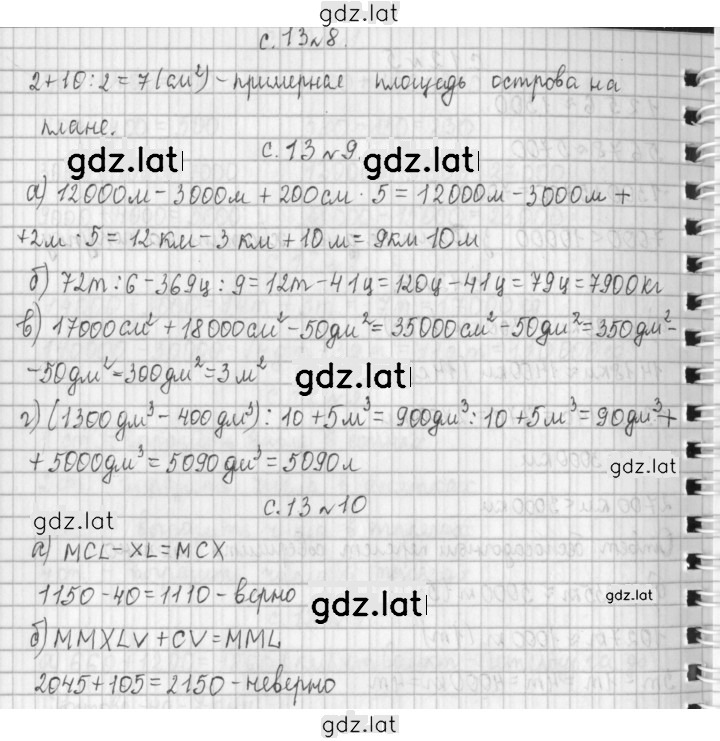 gdz.lat
с. 13 № 8.
2+10:2=7(см²)-примерная площадь острова на
плане.
gdz.lat
с. 13 № 9.
gdz.lat
а) 12000м-3000м+200см·5=12000м-3000м+
+2м·5=12км-3км+10м=9км 10м
б) 72т:6-369ц:9=12т-41ц=120ц-41ц=79ц=7900кг
в) 17000см²+18000см²-50дм²=35000см²-50дм²=350дм²-
-50дм²=300дм²=3м²
gdz.lat
г) (1300дм³-400дм³):10+5м³=900дм³:10+5м³=90дм³+
+5000дм³=5090дм³=5090л
gdz.lat
с. 13 № 10
gdz.lat
а) MCL-XL=MCX
1150-40=1110-верно
gdz.lat
gdz.lat
б) MMXLV+CV=MML
2045+105=2150-неверно
gdz.lat